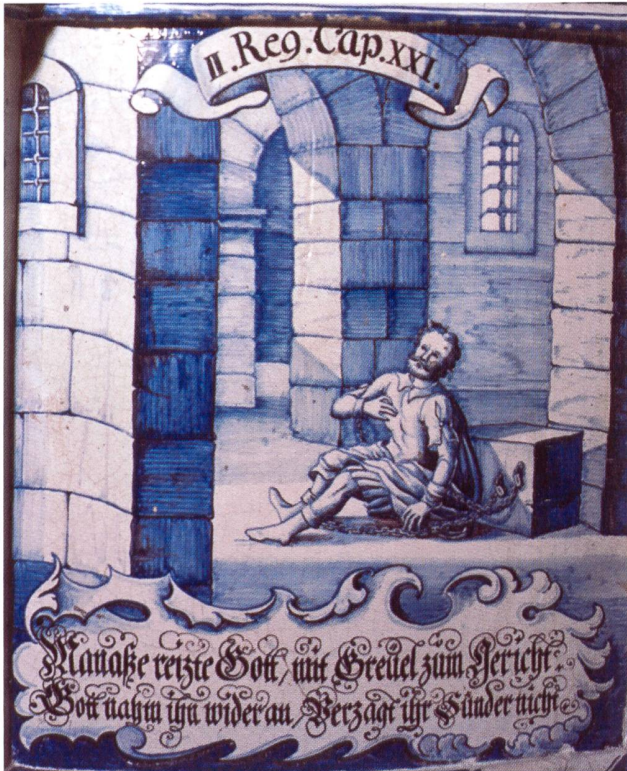 II. Reg. Cap. XXI.
Manaße reizte Gott / mit Greuel zum Gericht.
Gott nahm ihn wider an / Verzagt ihr Sünder nicht.